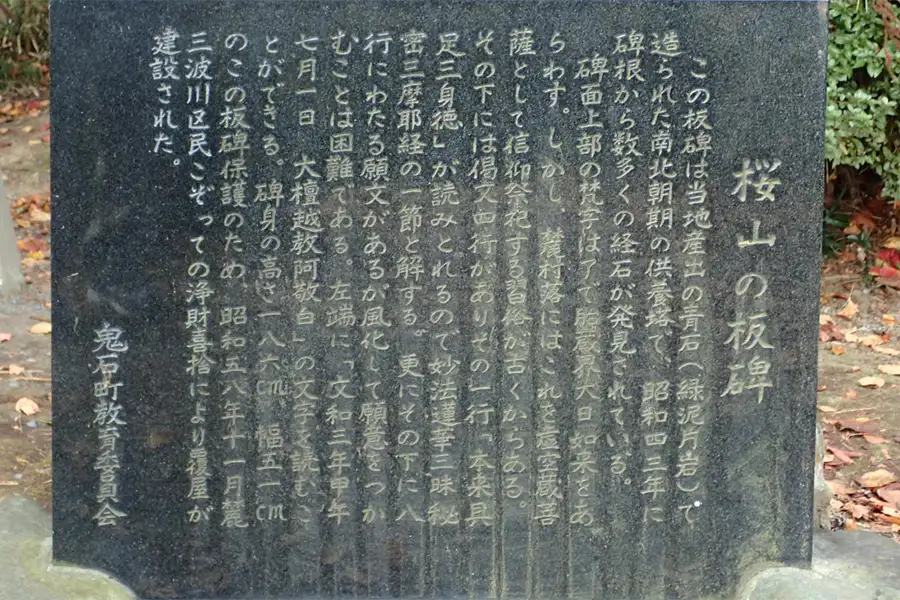 桜山の板碑
この板碑は当地産出の青石(緑泥片岩)で
造られた南北朝期の供養塔で、昭和四三年に
碑根から数多くの経石が発見されている。
碑面上部の梵字はアで胎蔵界大日如来をあ
らわす。しかし、麓村落にはこれを虚空蔵菩
薩として信仰祭祀する習俗が古くからある。
その下には偈文四行がありその一行「本来具
足三身徳」が読みとれるので妙法蓮華三昧秘
密三摩耶経の一節と解する。更にその下に八
行にわたる願文があるが風化して願意をつか
むことは困難である。左端に「文和三年甲午
七月一日 大檀越教阿敬白」の文字を読むこ
とができる。碑身の高さ一八六cm、幅五一cm
のこの板碑保護のため、昭和五八年十一月麓
三波川区民こぞっての浄財喜捨により覆屋が
建設された。
鬼石町教育委員会